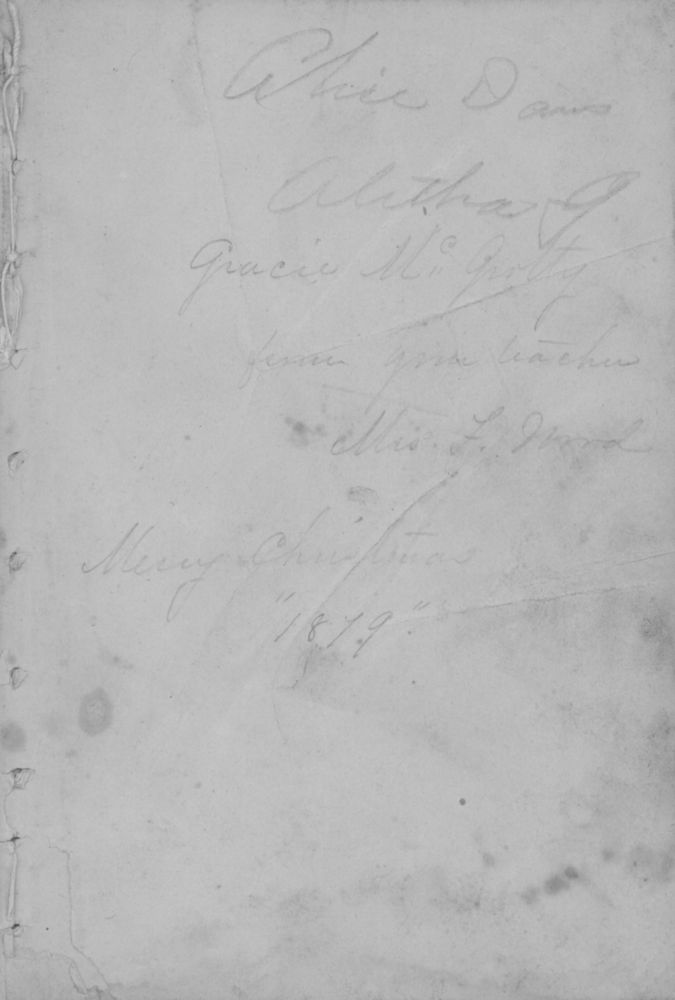 Alice Davis
Alitha G
Gracie Mc Grotty
from your teacher
Mrs. F. Wood
Merry Christmas
"1879"